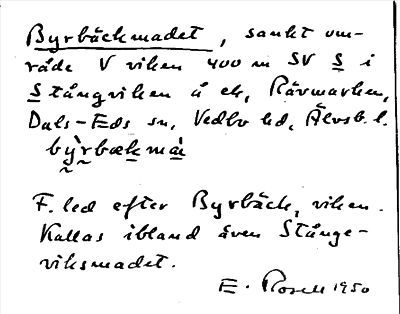 Byrbäckmadet, sankt om-
råde V viken 400 m SV S i
Stångviken å ek, Rävmarken,
Dals-Eds sn, Vedbo hd, Älvsb. l.
by̆rbækmȧi
F. led efter Byrbäck, viken.
Kallas ibland även Stånge-
viksmadet.
E. Rosell 1950